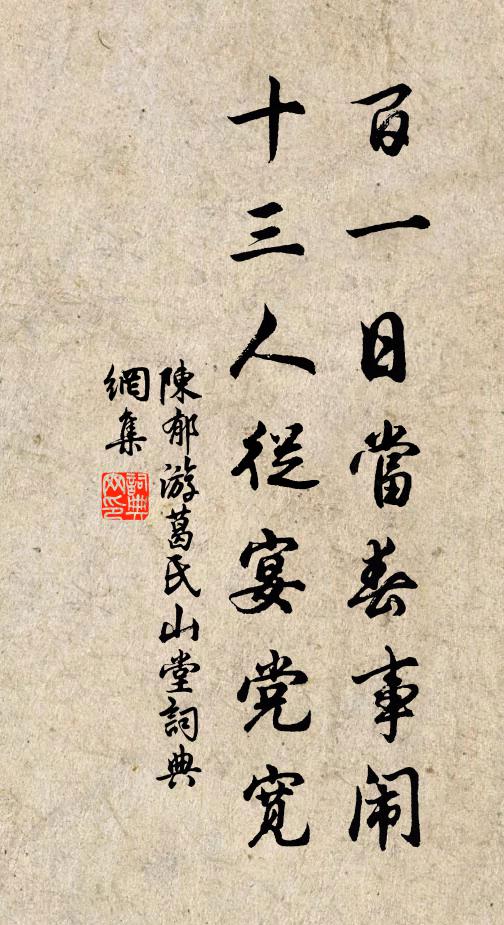 百一日當春事闹
十三人從宴党寬
陳郁游葛氏山堂詞典
網集
詞典
网印